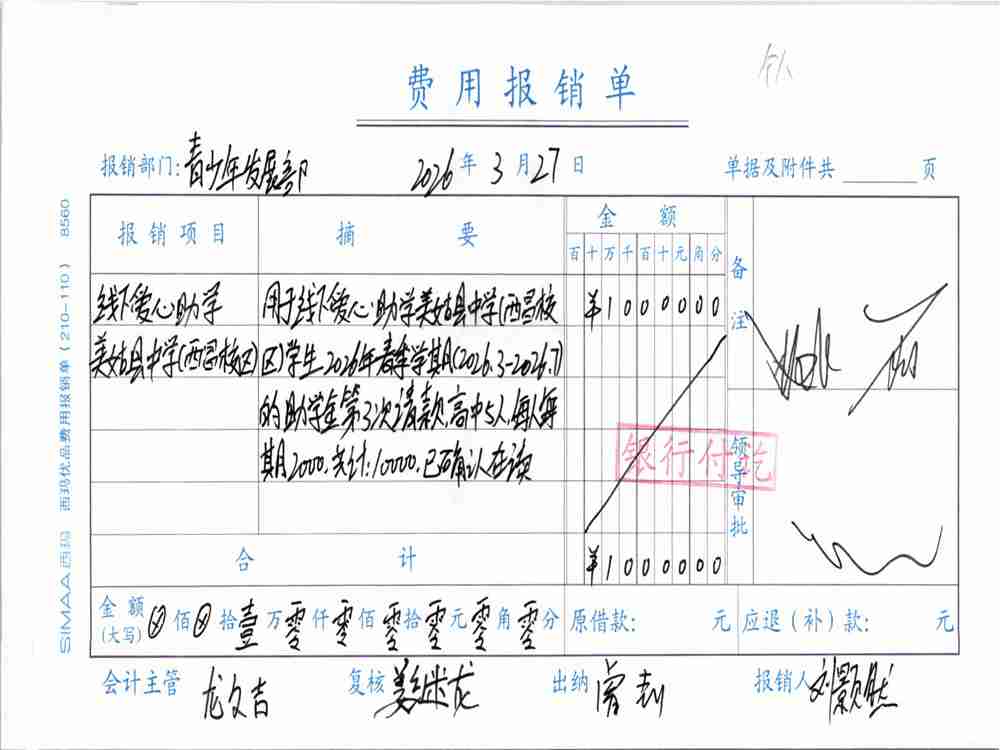 费用报销单
报销部门:青少年发展部 2026年3月27日 单据及附件共 页
报销项目 摘要 金额 备注
百十万千百十元角分
线下爱心助学 用于线下爱心助学美姑县中学(西昌校 ¥1000000
美姑县中学(西昌校区) 区)学生2026年春季学期(2026.3-2026.7)
的助学金第3次请款,高中5人,每人每
期2000,共计:10000,已确认在读
银行付讫
领导审批
合计 ¥1000000
金额(大写)⊗佰⊗拾壹万零仟零佰零拾零元零角零分 原借款: 元 应退(补)款: 元
会计主管 龙文吉 复核 出纳 报销人 刘颢然
SIMAA西玛 西玛优品费用报销单(210-110) 8560